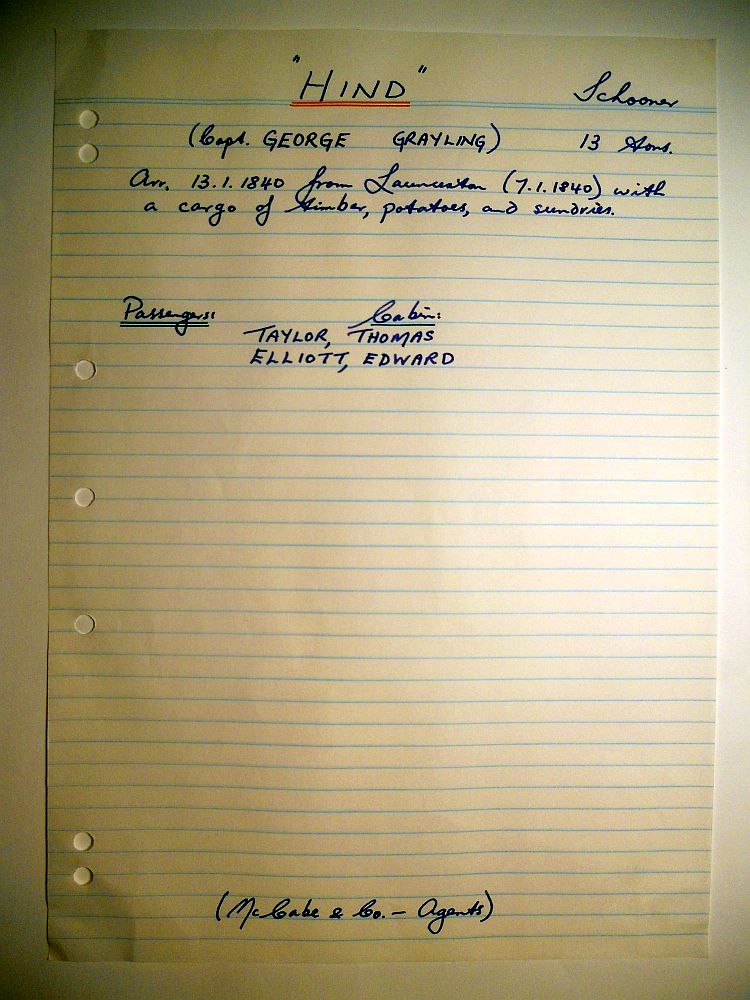 "HIND" Schooner
(Capt. GEORGE GRAYLING) 13 tons.
Arr. 13.1.1840 from Launceston (7.1.1840) with
a cargo of timber, potatoes, and sundries.
Passengers: Cabin:
TAYLOR, THOMAS
ELLIOTT, EDWARD
(McCabe & Co. – Agents)